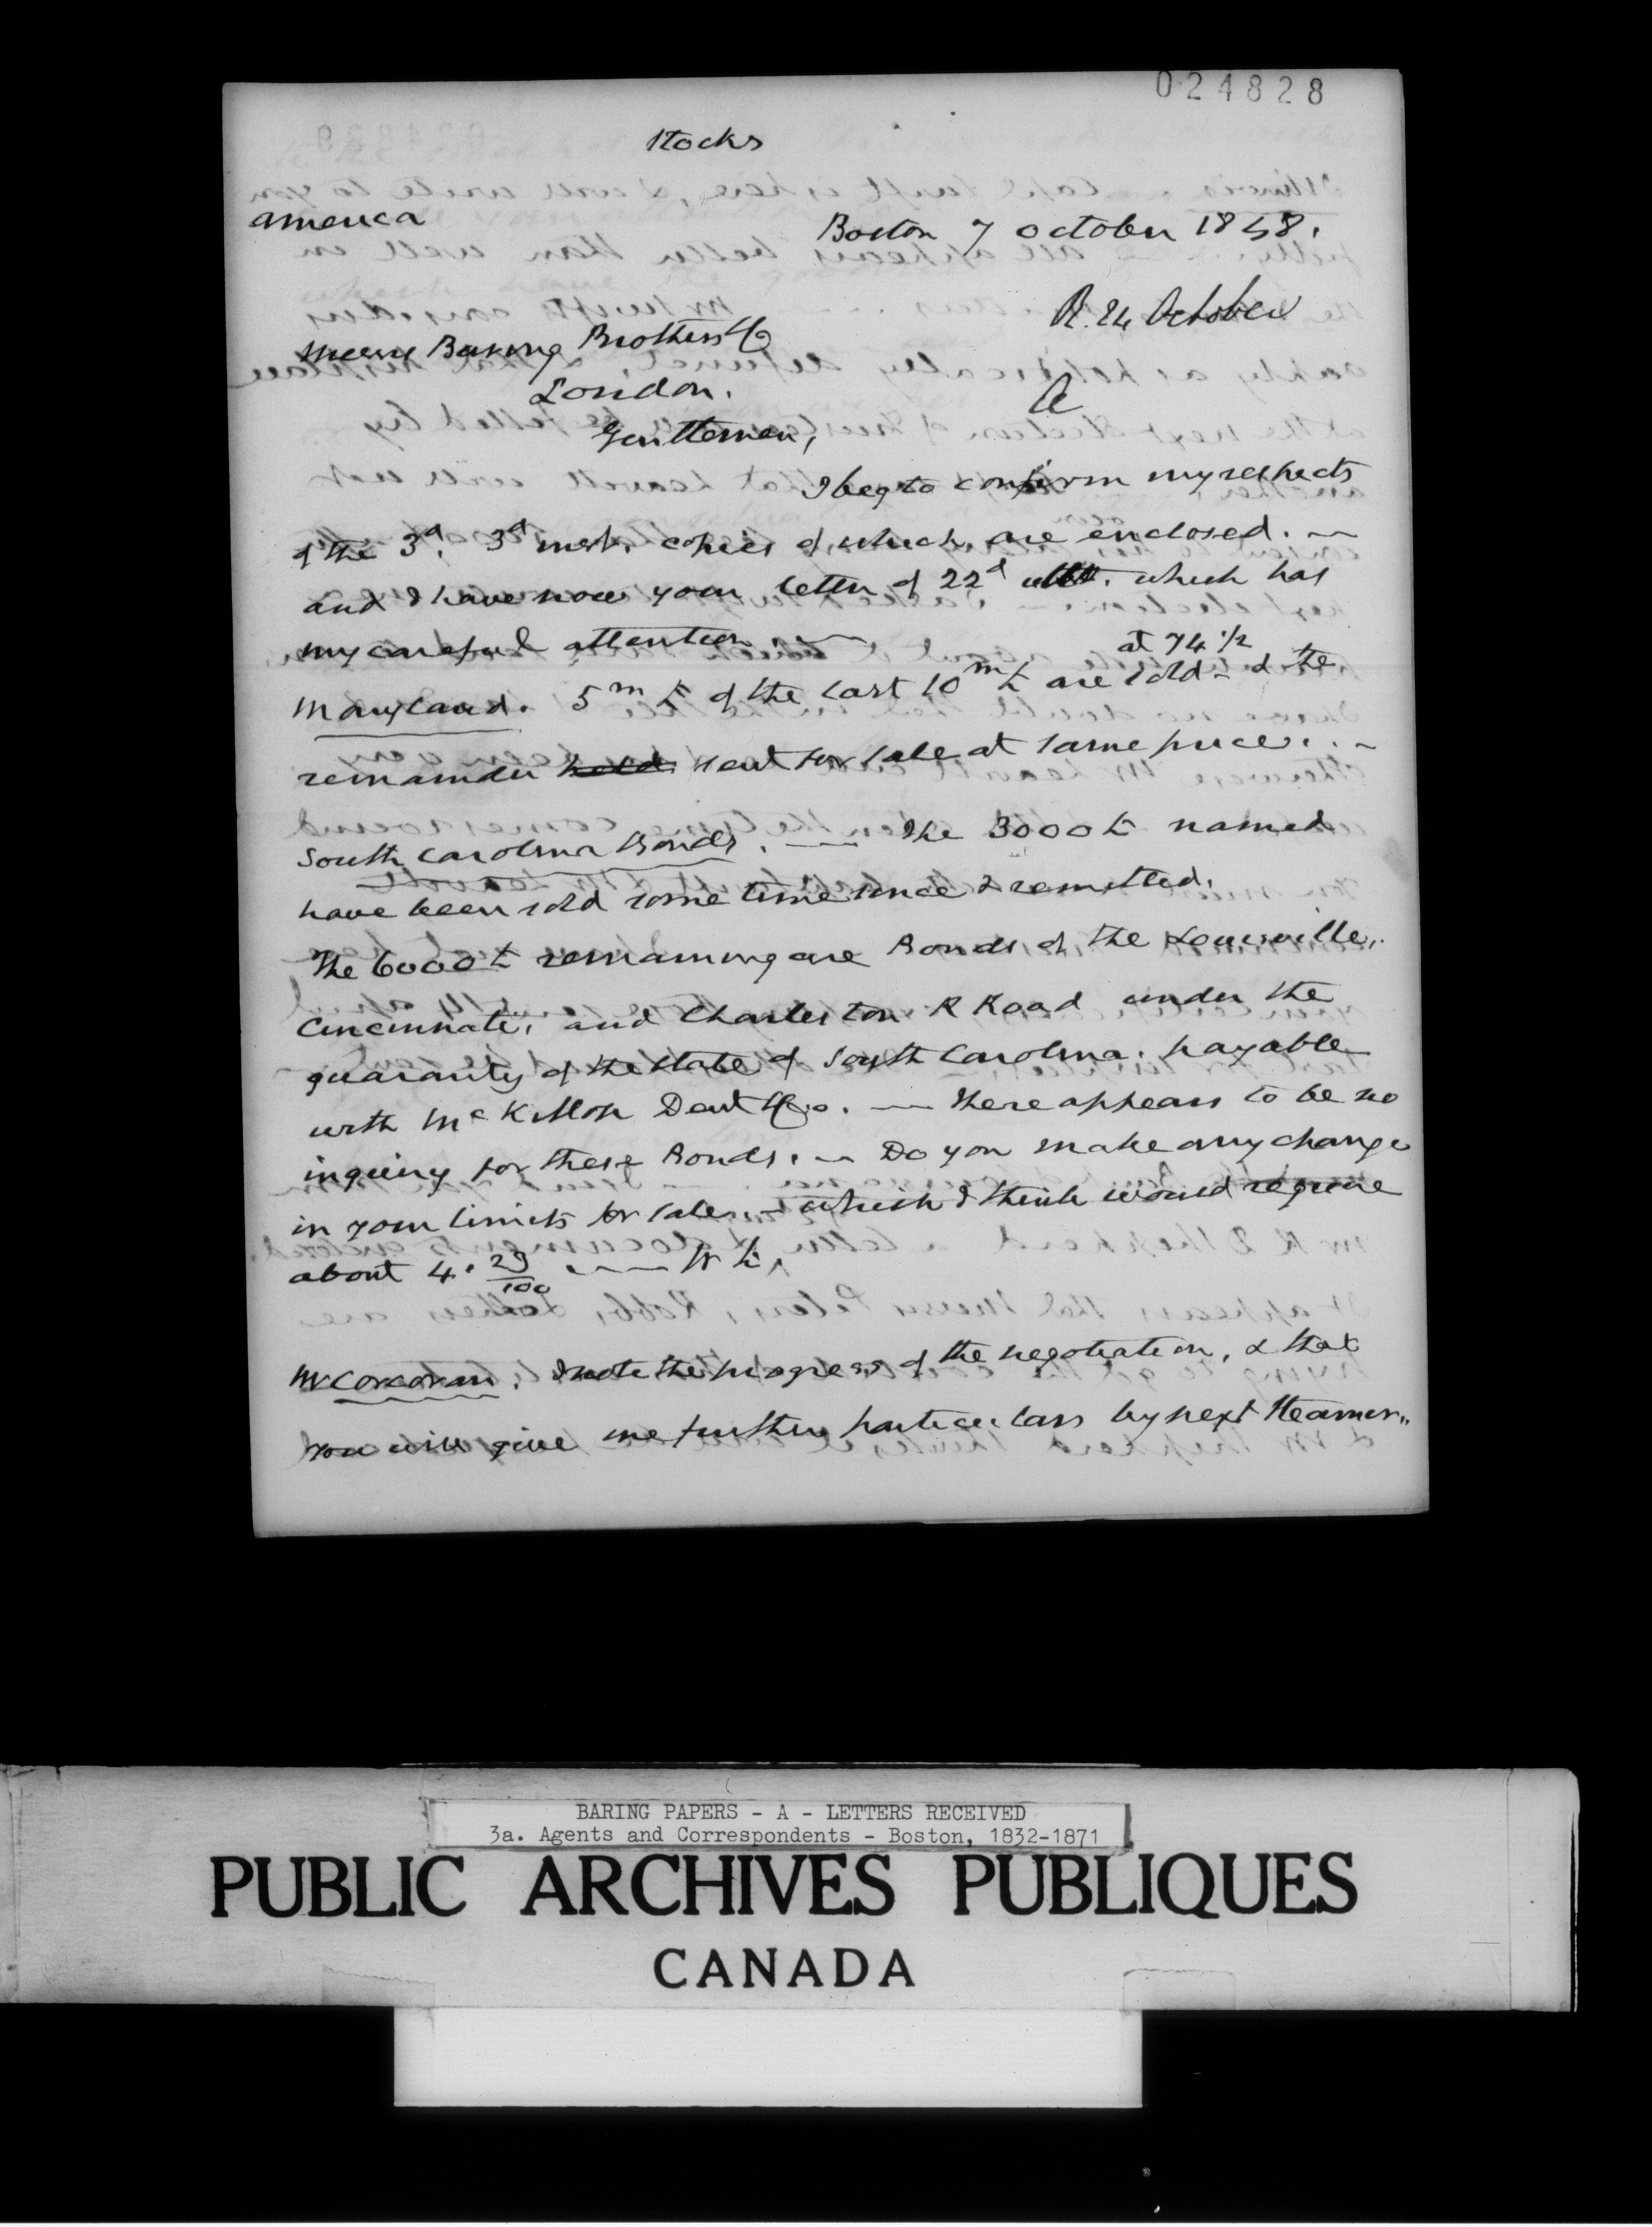 024828
Stocks
America
Boston 7 October 1848.
R. 24 October
Messrs Baring Brothers & Co
London.
a
Gentlemen,
I beg to confirm my respects
of the 3d. 3d inst. copies of which are enclosed. —
and I have now your letter of 22d ult. which has
my careful attention. —
at 74 1/2
Maryland. 5m £ of the last 10m £ are sold - & the
remainder held sent for sale at same price. . —
South Carolina Bonds. — The 3000 £ named
have been sold some time since & remitted.
The 6000 £ remaining are Bonds of the Louisville,
Cincinnati, and Charleston R Road under the
guaranty of the State of South Carolina. payable
with McKillop Dent & Co. — There appears to be no
inquiry for these Bonds. — Do you make any change
in your limits for sale, — which I think would require
about 4. 29/100 . — £.
Mr Corcoran. I note the progress of the negotiation, & that
you will give me further particulars by next Steamer..
BARING PAPERS - A - LETTERS RECEIVED
3a. Agents and Correspondents - Boston, 1832-1871
PUBLIC ARCHIVES PUBLIQUES
CANADA